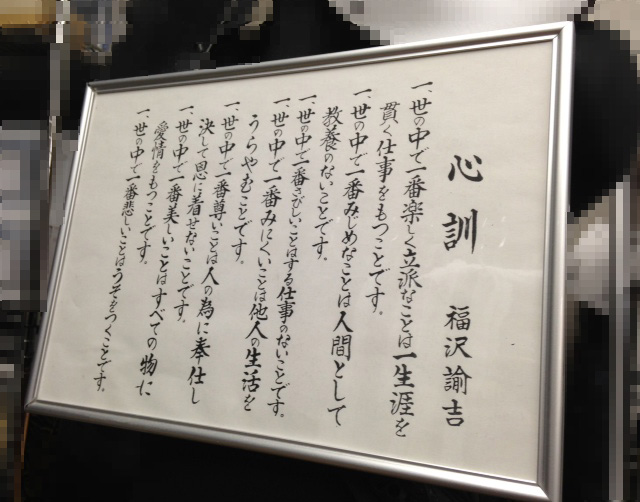 心訓 福沢諭吉
一、世の中で一番楽しく立派なことは一生涯を
貫く仕事をもつことです。
一、世の中で一番みじめなことは人間として
教養のないことです。
一、世の中で一番さびしいことはする仕事のないことです。
一、世の中で一番みにくいことは他人の生活を
うらやむことです。
一、世の中で一番尊いことは人の為に奉仕し
決して恩に着せないことです。
一、世の中で一番美しいことはすべての物に
愛情をもつことです。
一、世の中で一番悲しいことはうそをつくことです。